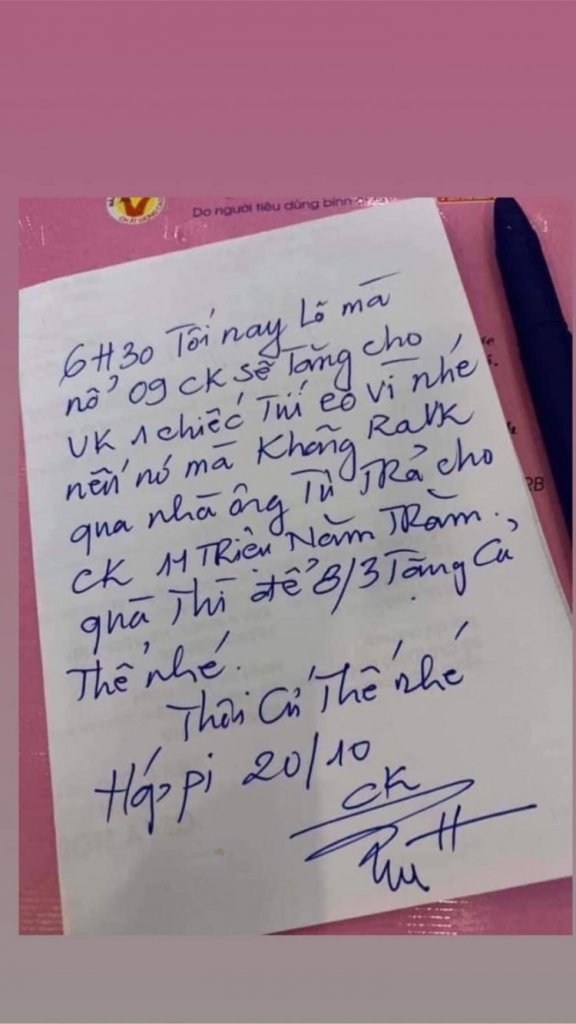 Do người tiêu dùng bình
6H30 Tối nay Lô mà
nổ 09 CK sẽ Tặng cho
VK 1 chiếc Túi eo Vì nhé
nến nó mà Không Ra VK
qua nhà ông Tú TRả cho
CK 11 TRiệu Năm TRăm.
quà Thì để 8/3 Tặng Cả
Thể nhé.
Thôi Cứ Thế nhé
Háppi 20/10
CK
RB